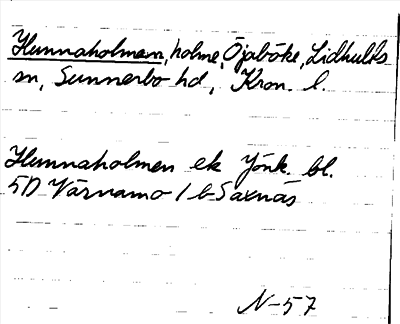 Hunnaholmen, holme, Öjaböke, Lidhults
sn, Sunnerbo hd, Kron. l.
Hunnaholmen ek Jönk. bl.
5D Värnamo 1 b Saxnäs
N-57